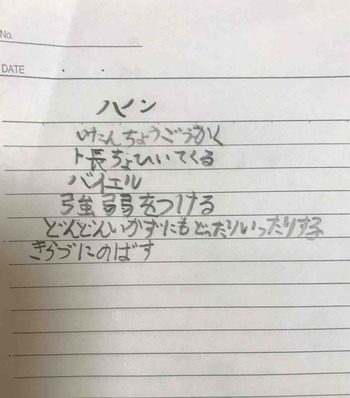 No.
DATE ・ ・
ハノン
けたんちょうごうかく
ト長ちょひいてくる
バイエル
強弱をつける
どんどんいかずにもどったりいったりする
きらづにのばす